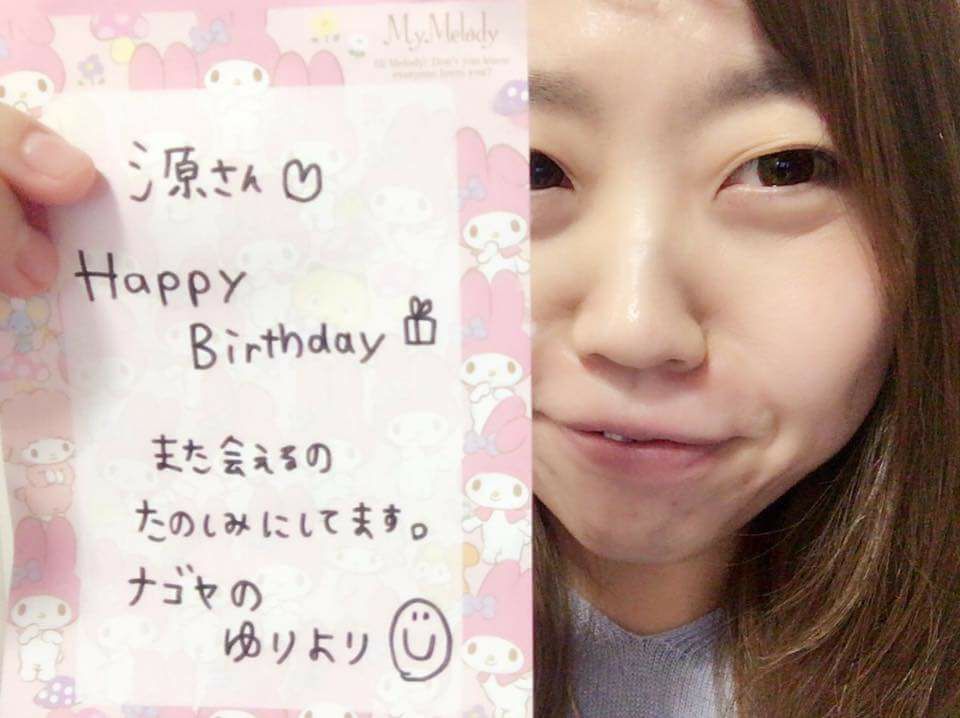 My Melody
Hi Melody! Don't you know
everyone loves you?
原さん♡
Happy
Birthday
また会えるの
たのしみにしてます。
ナゴヤの
ゆりより